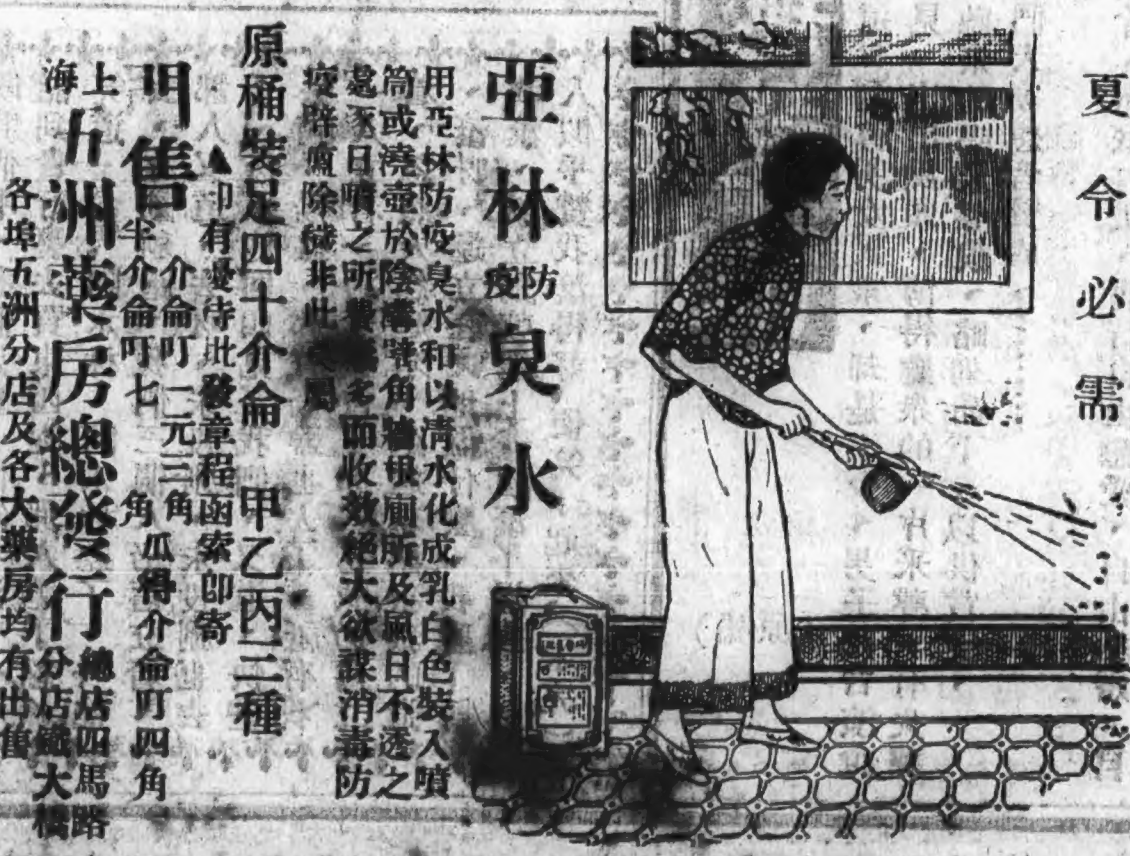 夏令必需
亞林防疫臭水
用亞林防疫臭水和以清水化成乳白色裝入噴
筒或澆壺於陰溝暗角牆根廁所及風日不透之
處逐日噴之所費 多而收效絕大欲謀消毒防
疫辟 除穢非此 屬
原桶裝足四十介侖 甲乙丙三種
▲印有優待批發章程函索即寄
門售
介侖叮一元三角 瓜得介侖叮四角
半介侖叮七角
上海五洲藥房總發行
總店四馬路
分店鐵大橋
各埠五洲分店及各大藥房均有出售